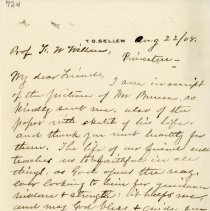 924
T. G. SELLEW
Aug 22/08.
Prof F. W Williams,
Princeton
My dear Friends,
I am in receipt
of the picture of Mr Brune, so
kindly sent me, also of the
paper with sketch of his life.
and thank you most heartily for
them. The life of our friend
teaches us to faithful in all
things, as God opens the way,
ever looking to him for guidance
wisdom & strength. He helps me
and may God bless & guide you